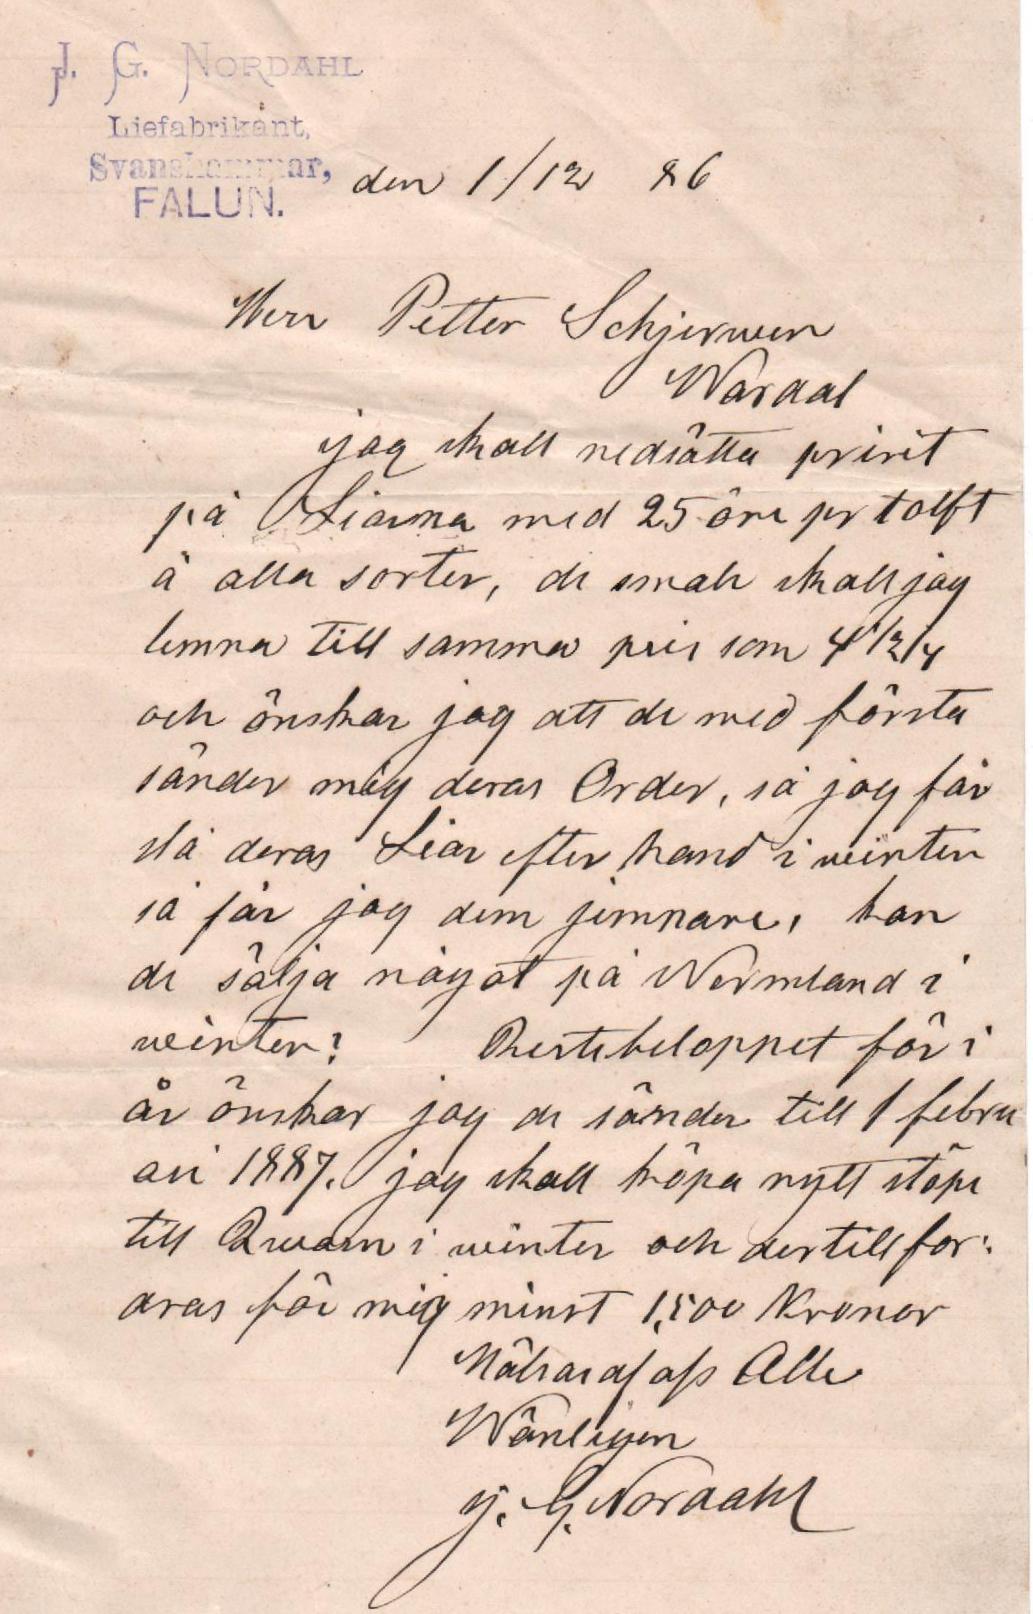 J. G. NORDAHL
Liefabrikant,
Svanshammar,
FALUN.
den 1/12 86
Herr Petter Schjerwen
Wärdal
jag skall nedsätta priset
på Liarna med 25 öre pr tolft
å alla sorter, de smale skall jag
lemna till samma pris som 4 1/2/4
och önskar jag att de med första
sänder mig deras Order, så jag får
slå deras Liar efter hand i winter
så får jag dem jemnare, kan
de sälja något på Wermland i
winter? Restebeloppet för i
år önskar jag de sänder till 1 febru
ari 1887. jag skall köpa nytt stöpe
till Qwarn i winter och dertill for:
dras för mig minst 1,500 Kronor
Hälsas af oss Alle
Wänligen
J. G. Nordahl